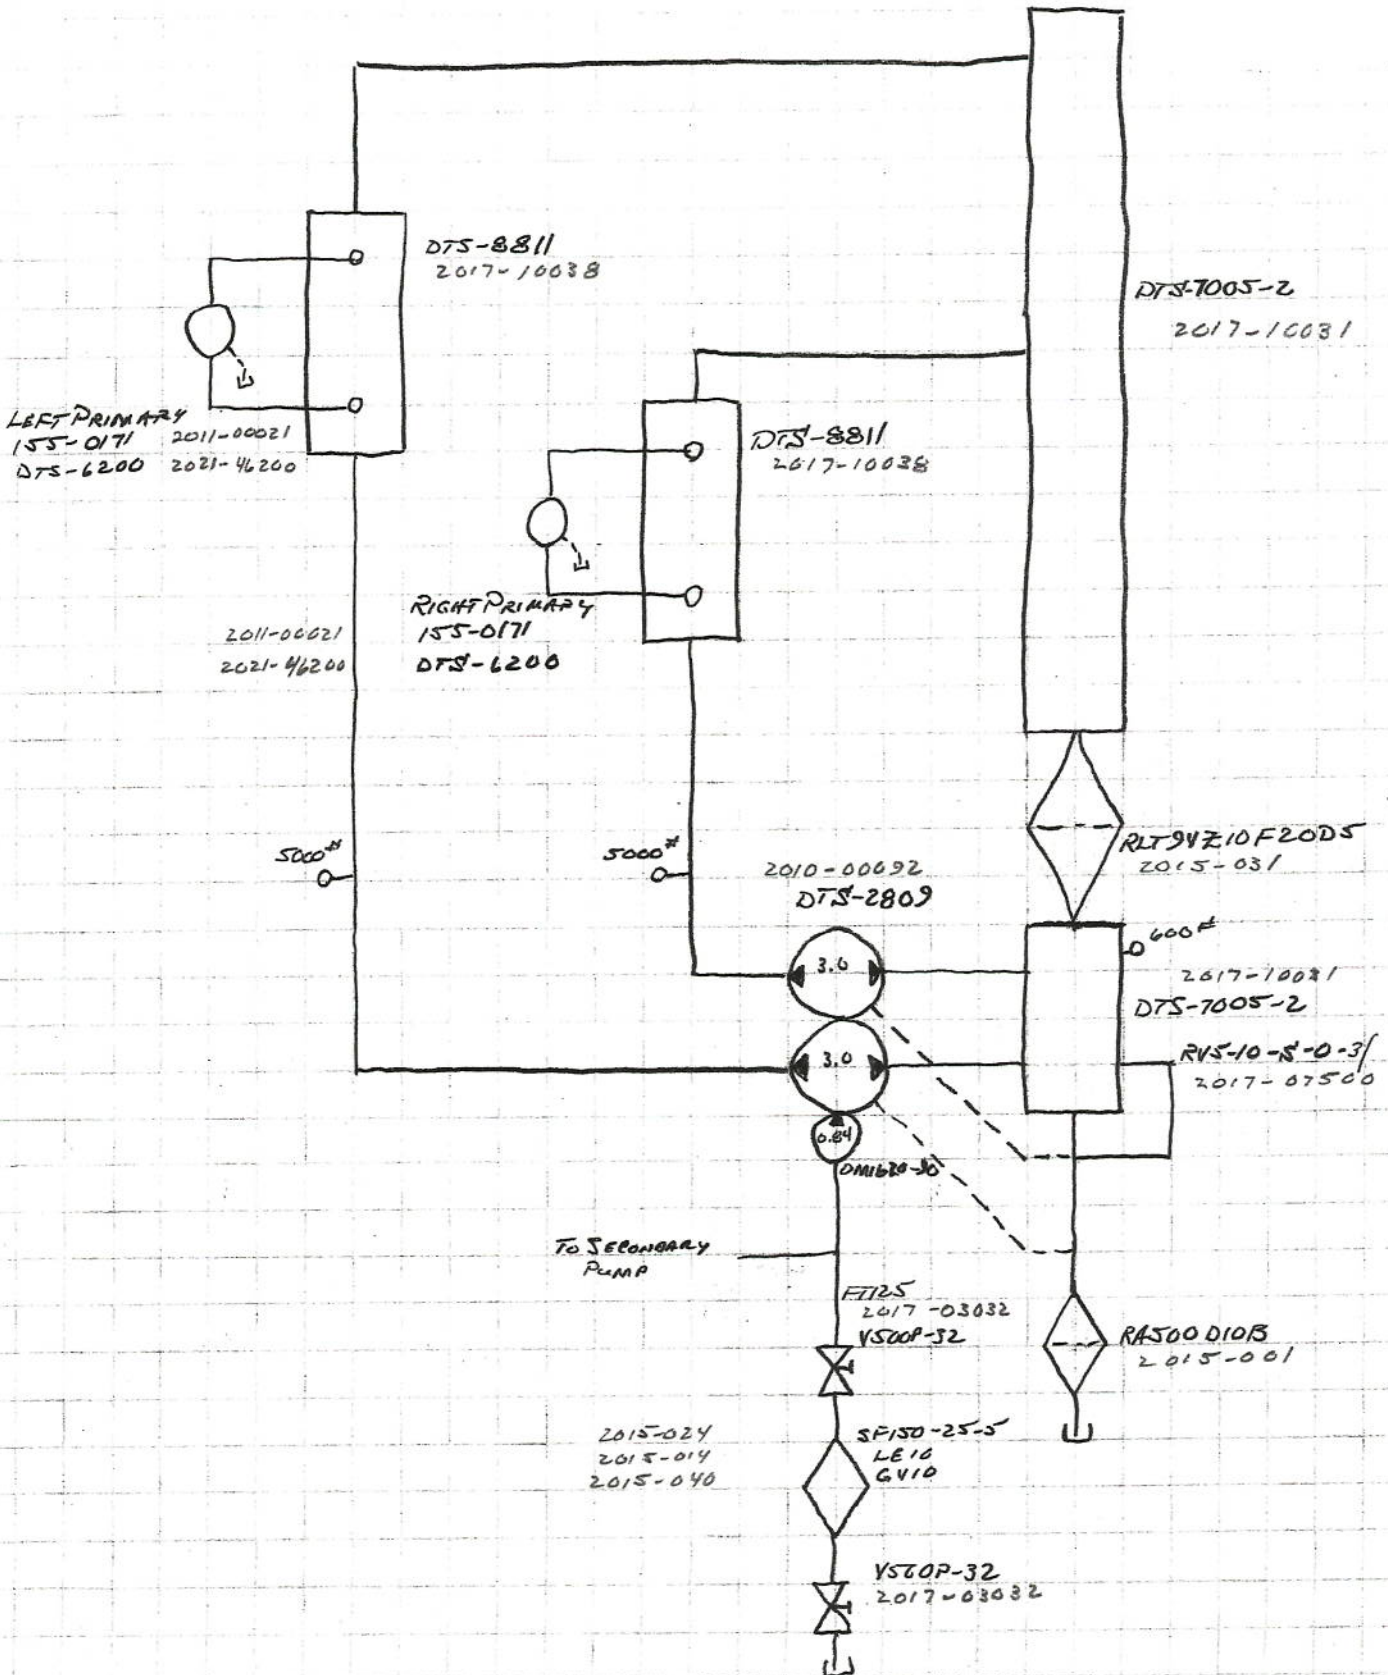 DTS-8811
2017-10038
DTS-7005-2
2017-10031
LEFT PRIMARY
155-0171 2011-00021
DTS-6200 2021-46200
DTS-8811
2017-10038
RIGHT PRIMARY
155-0171
DTS-6200
2011-00021
2021-46200
5000#
5000#
2010-00092
DTS-2809
RLT9VZ10F20D5
2015-031
600#
2017-10031
DTS-7005-2
3.0
3.0
0.84
RV5-10-S-0-3/
2017-07500
TO SECONDARY
PUMP
FT125
2017-03032
V500P-32
RA500D10B
2015-001
2015-024
2015-014
2015-040
SF150-25-5
LE10
GV10
V500P-32
2017-03032